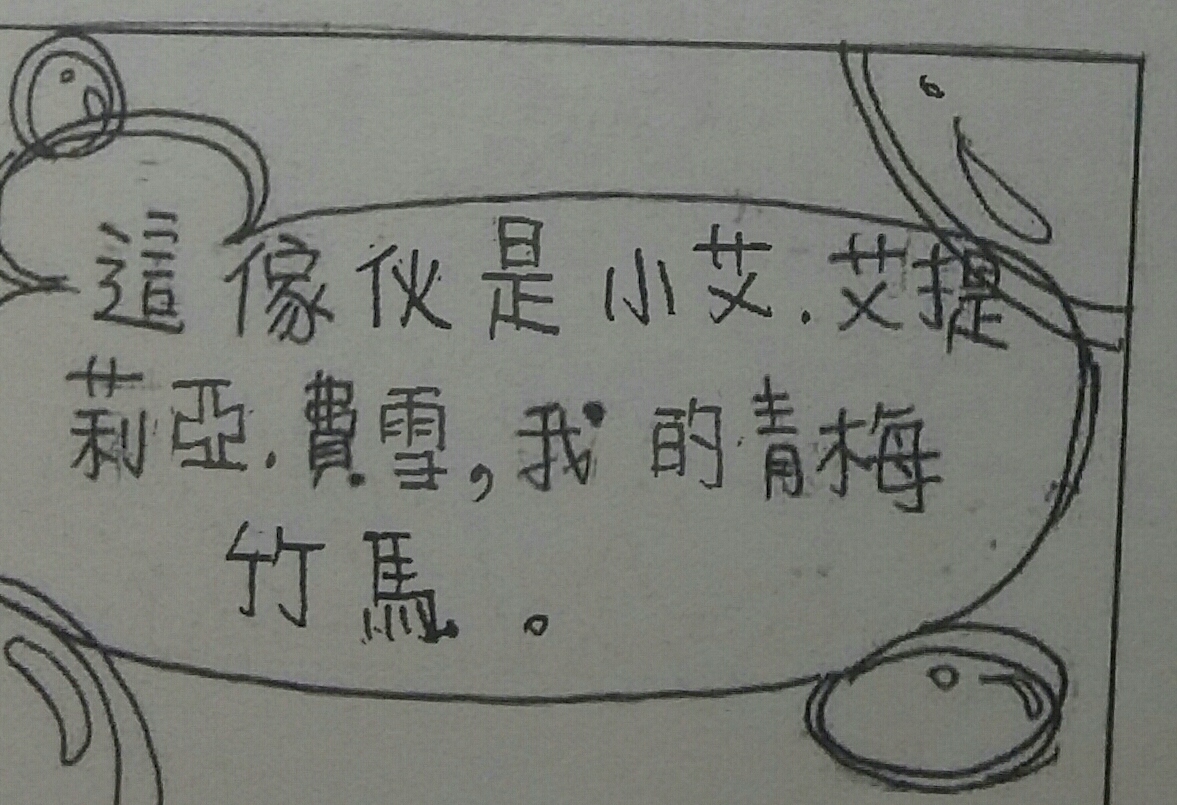 這傢伙是小艾.艾提
莉亞.費雪,我的青梅
竹馬。